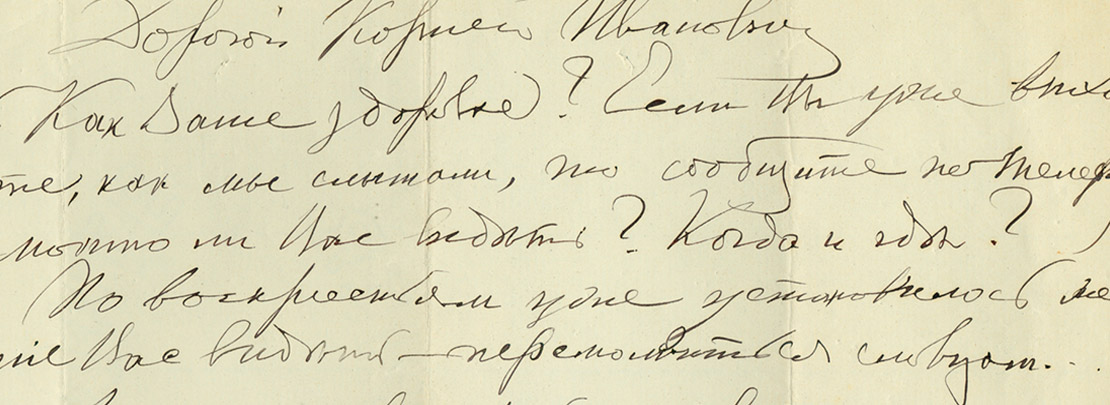 Дорогой Корней Иванович
Как Ваше здоровье? Если Вы уже выхо
те, как мы слышали, то сообщите по телеф
можно ли Вас видѣть? Когда и гдѣ?
По воскресеньям уже установилось
Вас видѣть — перемолвиться словцом...